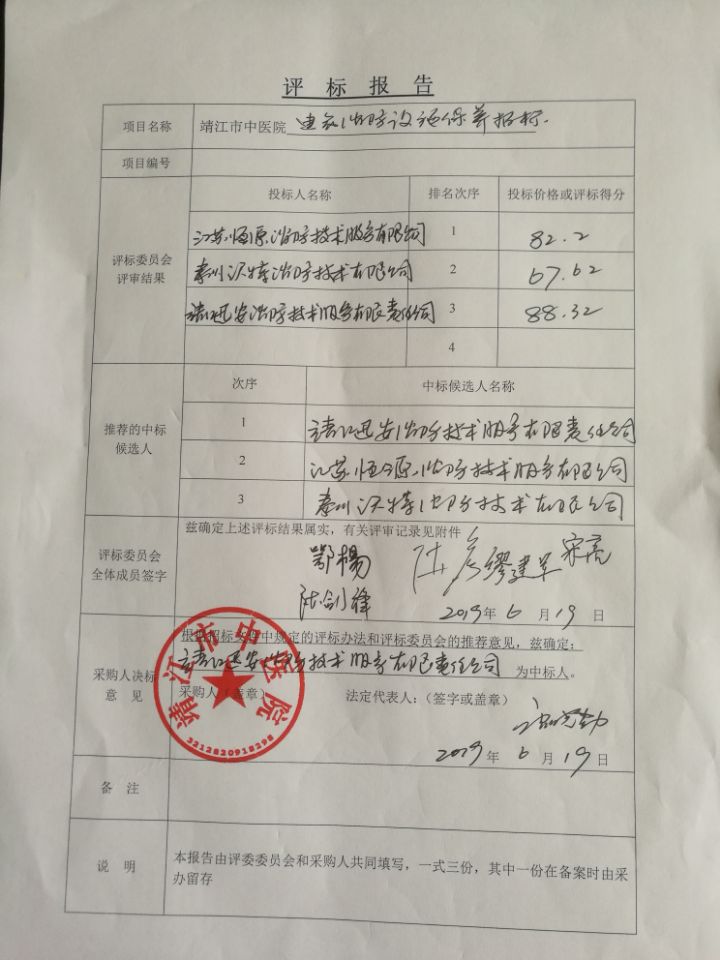 评标报告
项目名称 靖江市中医院 建筑消防设施保养招标
项目编号
投标人名称 排名次序 投标价格或评标得分
评标委员会
评审结果
江苏恒源消防技术服务有限公司 1 82.2
泰州沃特消防技术有限公司 2 67.62
靖江迅安消防技术服务有限责任公司 3 88.32
4
次序 中标候选人名称
推荐的中标
候选人
1 靖江迅安消防技术服务有限责任公司
2 江苏恒源消防技术服务有限公司
3 泰州沃特消防技术有限公司
兹确定上述评标结果属实，有关评审记录见附件
评标委员会
全体成员签字
鄂杨 缪建军 宋亮
陆剑锋 2019年6月19日
根据招标文件中规定的评标办法和评标委员会的推荐意见，兹确定：
靖江迅安消防技术服务有限责任公司 为中标人。
采购人决标
意见
采购人（盖章） 法定代表人：（签字或盖章）
靖江市中医院
3212820918298
2019年6月19日
备注
说明
本报告由评委委员会和采购人共同填写，一式三份，其中一份在备案时由采
办留存